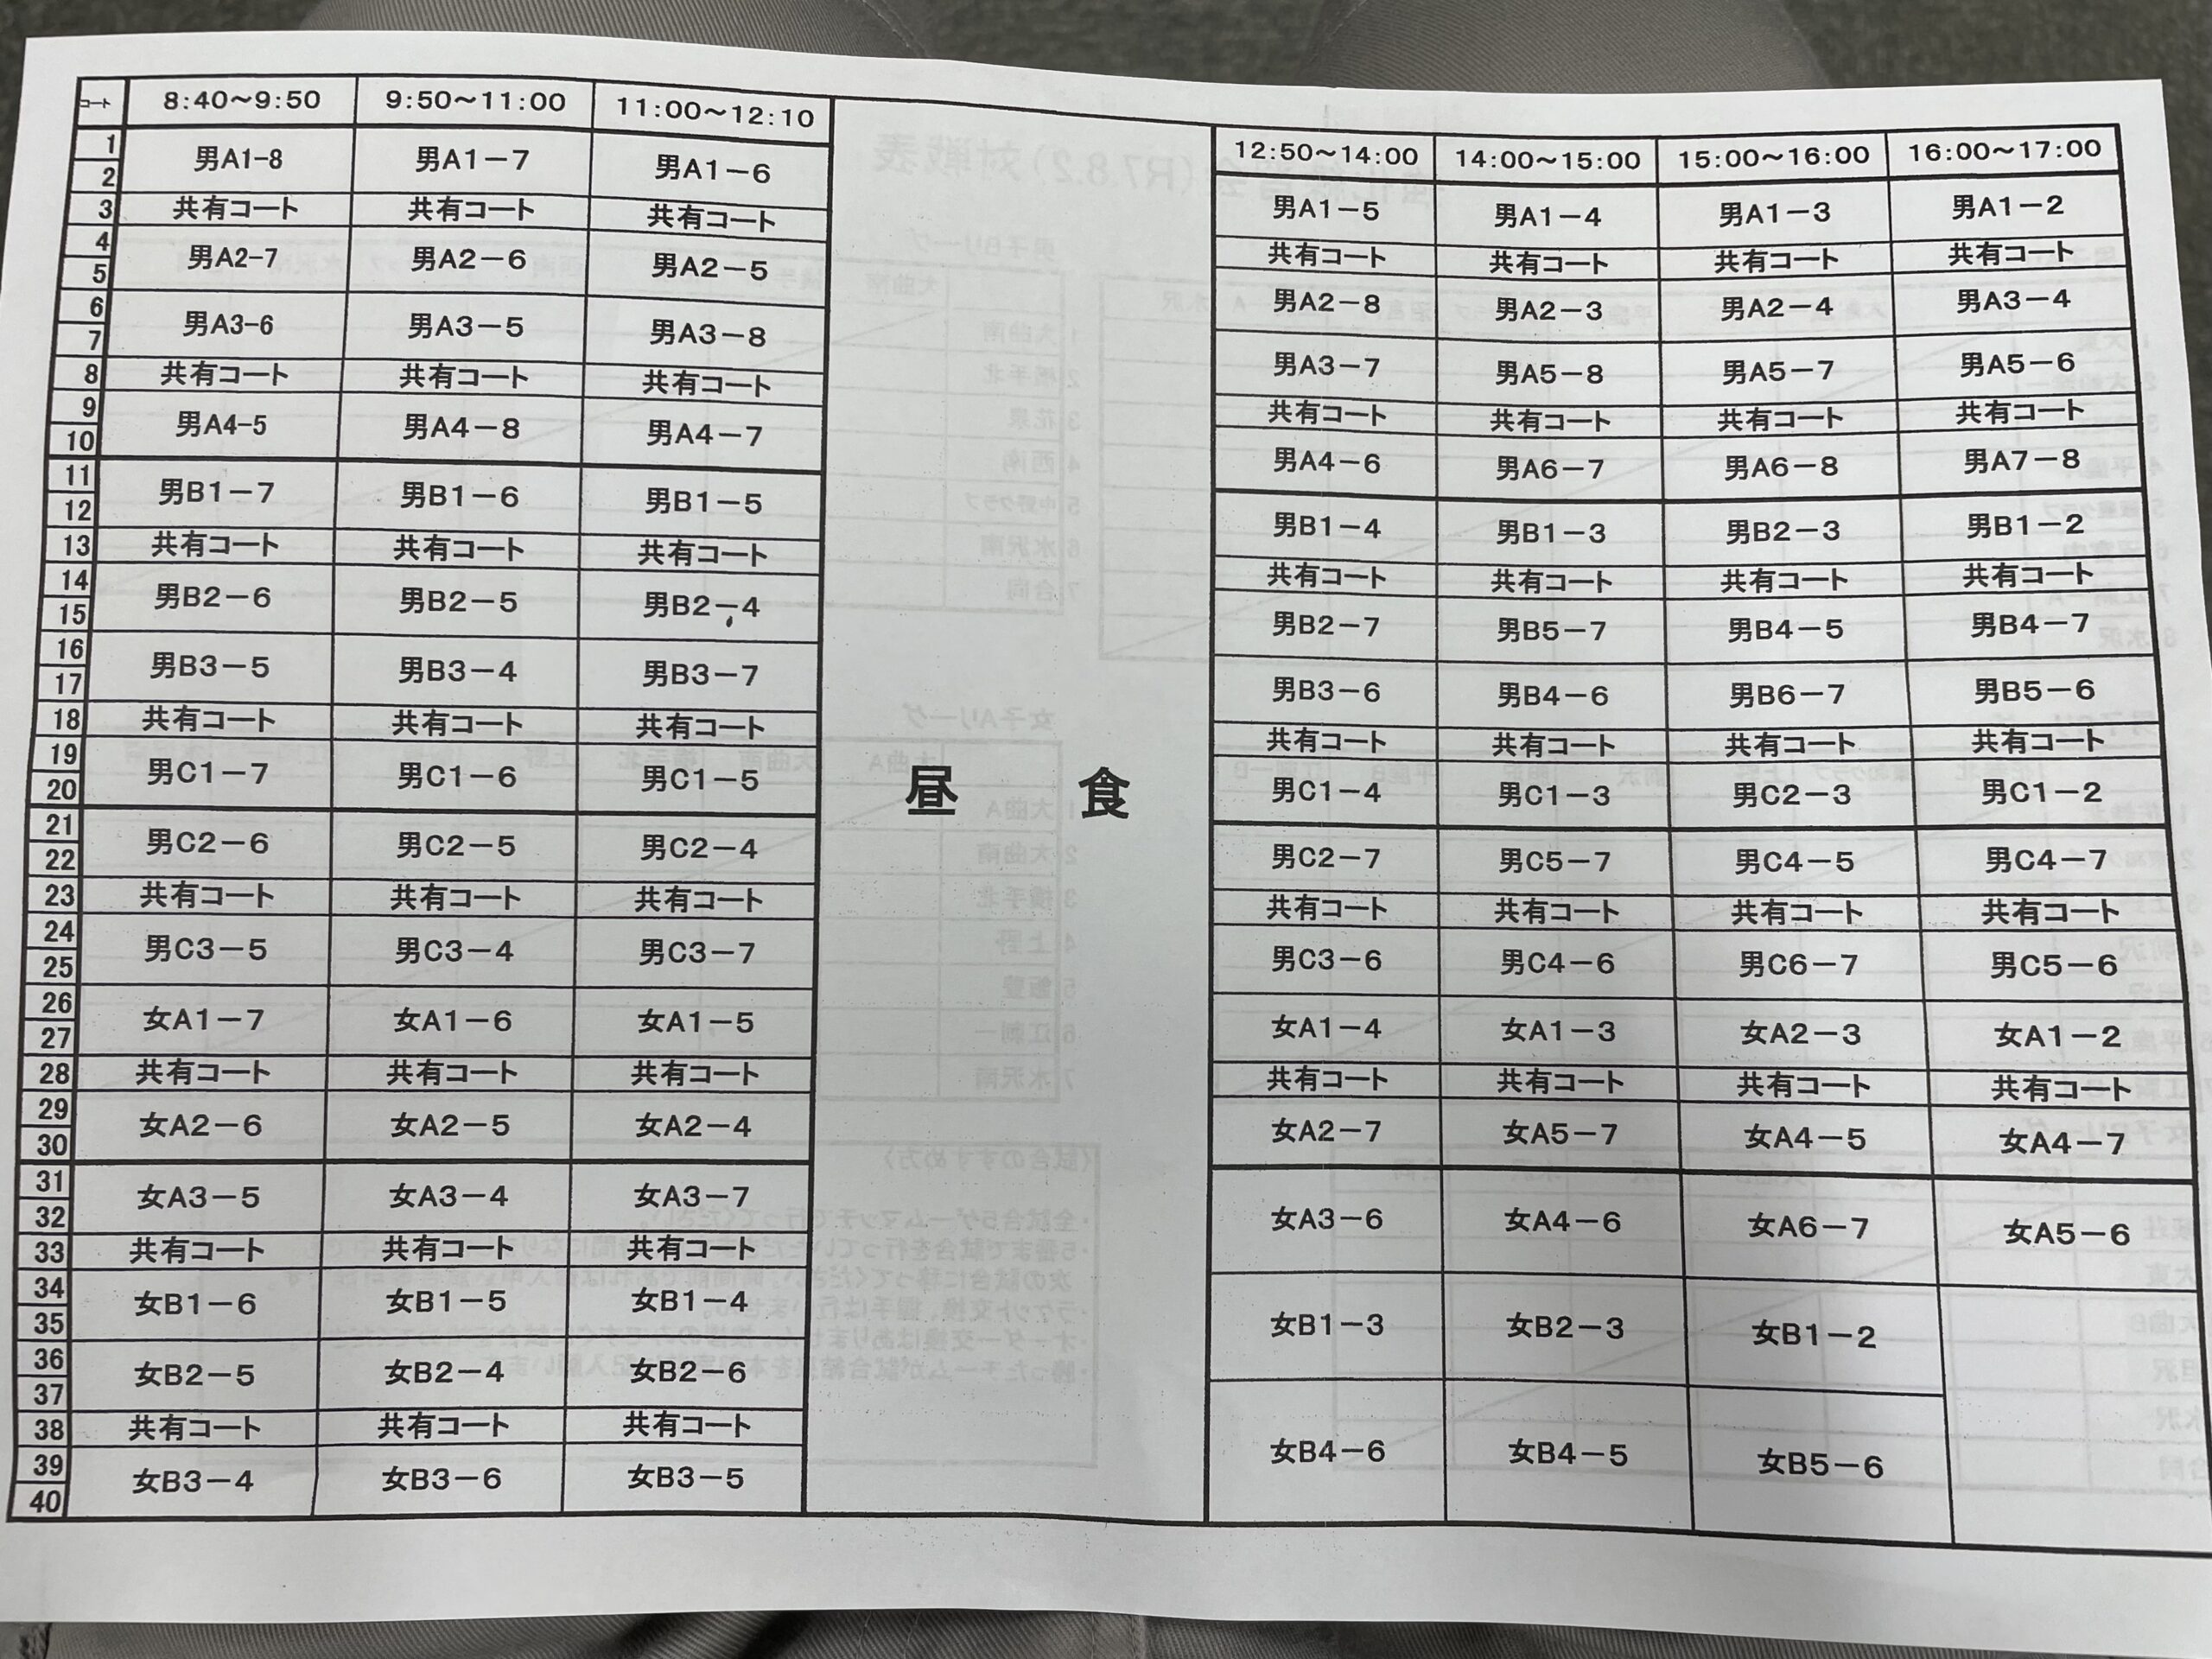 コート 8:40～9:50 9:50～11:00 11:00～12:10 12:50～14:00 14:00～15:00 15:00～16:00 16:00～17:00
1 2 男A1-8 男A1－7 男A1－6 男A1－5 男A1－4 男A1－3 男A1－2
3 共有コート 共有コート 共有コート 共有コート 共有コート 共有コート 共有コート
4 5 男A2-7 男A2－6 男A2－5 男A2－8 男A2－3 男A2－4 男A3－4
6 7 男A3-6 男A3－5 男A3－8 男A3－7 男A5－8 男A5－7 男A5－6
8 共有コート 共有コート 共有コート 共有コート 共有コート 共有コート 共有コート
9 10 男A4-5 男A4－8 男A4－7 男A4－6 男A6－7 男A6－8 男A7－8
11 12 男B1－7 男B1－6 男B1－5 男B1－4 男B1－3 男B2－3 男B1－2
13 共有コート 共有コート 共有コート 共有コート 共有コート 共有コート 共有コート
14 15 男B2－6 男B2－5 男B2－4 男B2－7 男B5－7 男B4－5 男B4－7
16 17 男B3－5 男B3－4 男B3－7 男B3－6 男B4－6 男B6－7 男B5－6
18 共有コート 共有コート 共有コート 共有コート 共有コート 共有コート 共有コート
19 20 男C1－7 男C1－6 男C1－5 昼食 男C1－4 男C1－3 男C2－3 男C1－2
21 22 男C2－6 男C2－5 男C2－4 男C2－7 男C5－7 男C4－5 男C4－7
23 共有コート 共有コート 共有コート 共有コート 共有コート 共有コート 共有コート
24 25 男C3－5 男C3－4 男C3－7 男C3－6 男C4－6 男C6－7 男C5－6
26 27 女A1－7 女A1－6 女A1－5 女A1－4 女A1－3 女A2－3 女A1－2
28 共有コート 共有コート 共有コート 共有コート 共有コート 共有コート 共有コート
29 30 女A2－6 女A2－5 女A2－4 女A2－7 女A5－7 女A4－5 女A4－7
31 32 女A3－5 女A3－4 女A3－7 女A3－6 女A4－6 女A6－7 女A5－6
33 共有コート 共有コート 共有コート
34 35 女B1－6 女B1－5 女B1－4 女B1－3 女B2－3 女B1－2
36 37 女B2－5 女B2－4 女B2－6
38 共有コート 共有コート 共有コート
39 40 女B3－4 女B3－6 女B3－5 女B4－6 女B4－5 女B5－6